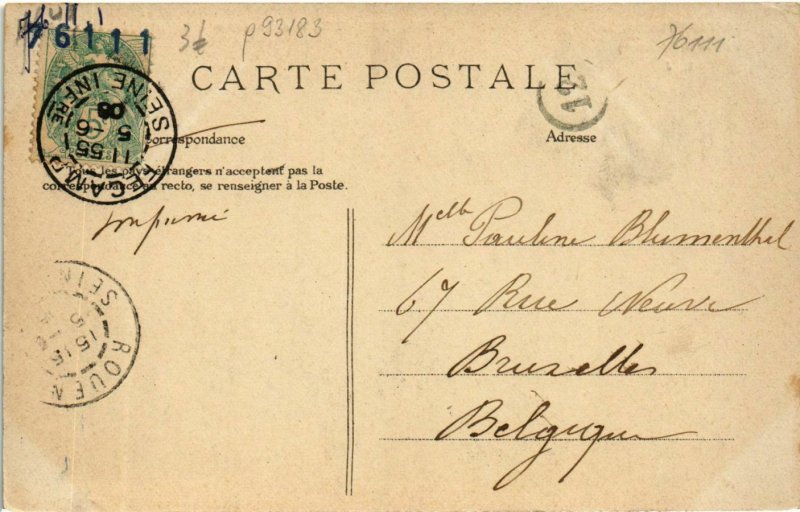 76111
3
p93183
76111
CARTE POSTALE
12
Correspondance
Adresse
Tous les pays étrangers n'acceptent pas la
correspondance au recto, se renseigner à la Poste.
FECAMP
SEINE INFRE
11 55
5 -6
06
imprimé
Melle Pauline Blumenthal
67 Rue Neuve
Bruxelles
Belgique
ROUEN
SEIN
15